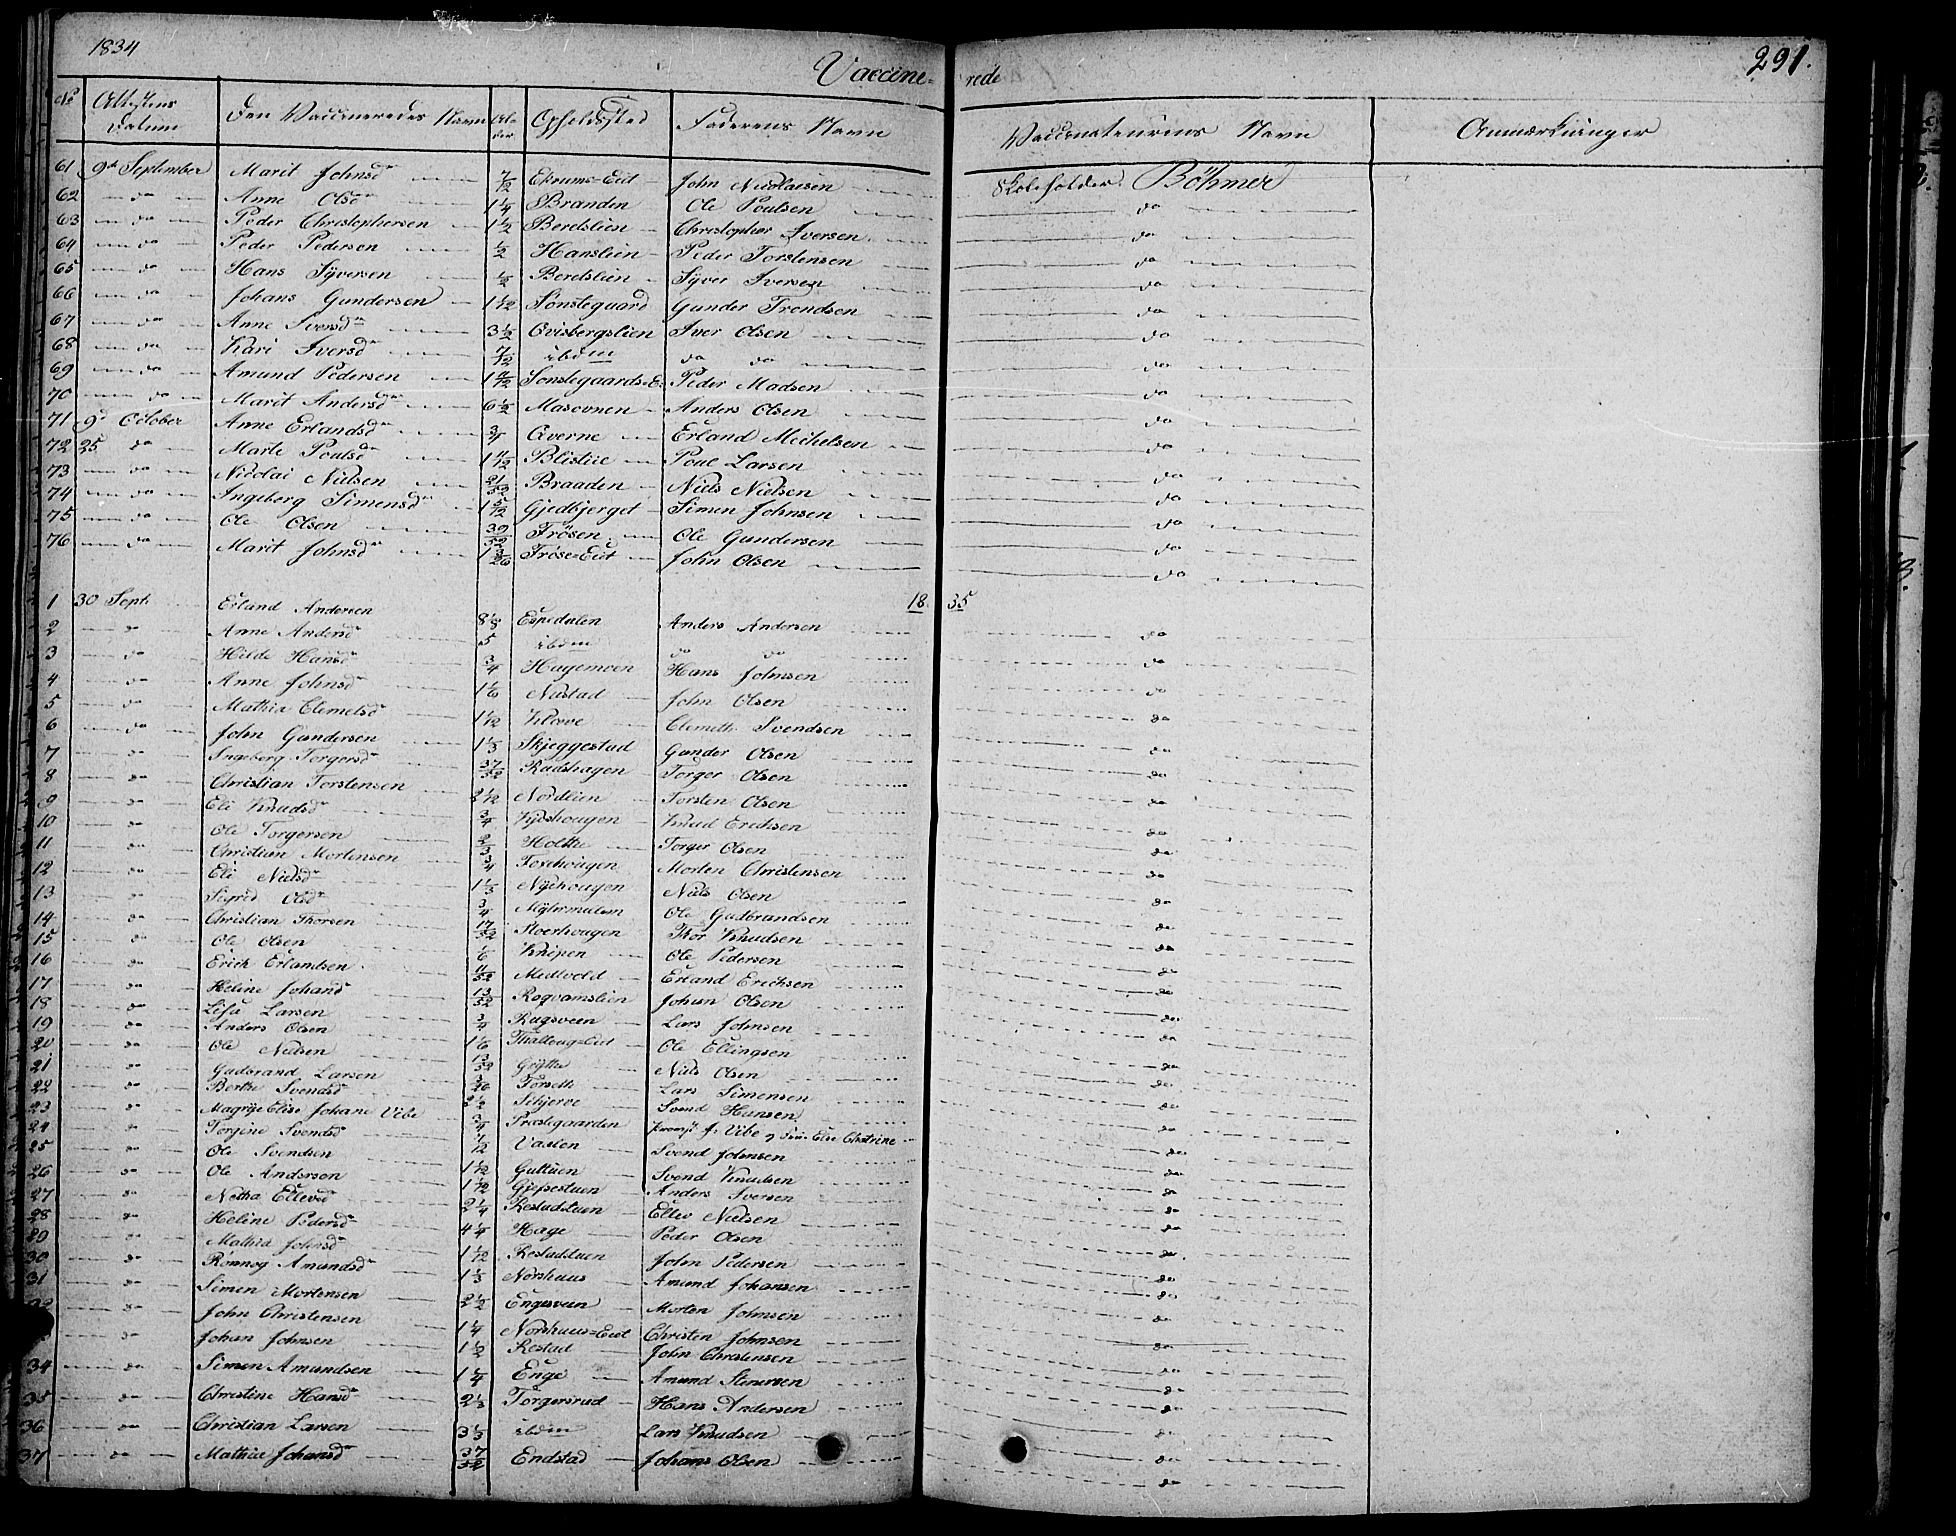 1834 Vaccine- rede 291.
No Attestens Datum Den Vaccineredes Navn Alder Opholdssted Faderens Navn Vaccinateurens Navn Anmærkninger
61 9de September Marit Johnsdr 7/12 Ekrums=Eiet John Nicolaisen Skoleholder Böhmer
62 do Anne Olsdr 1 1/4 Branden Ole Poulsen do
63 do Peder Christophersen 1 1/2 Beretslien Christopher Iversen do
64 do Peder Pedersen 1/2 Hanslien Peder Torstensen do
65 do Hans Syversen 1/2 Beretslien Syver Iversen do
66 do Johans Gundersen 1 1/12 Sonstegaard Gunder Trondsen do
67 do Anne Iversdr 3 1/2 Qvisbergslien Iver Olsen do
68 do Kari Iversdr 7/12 ibdm do do do
69 do Amund Pedersen Sonstegaards=E. Peder Madsen do
70 do Marit Andersdr 6 1/2 Masovnen Anders Olsen do
71 9de October Anne Erlandsdr 3/4 Qverne Erland Michelsen do
72 25 do Marte Poulsdr Blistue Poul Larsen do
73 do Nicolai Nielsen 21/52 Braaden Niels Nielsen do
74 do Ingeborg Simensdr 1 5/12 Gjedbjerget Simen Johnsen do
75 do Ole Olsen 39/52 Frösen Ole Gundersen do
76 do Marit Johnsdr 1 3/26 Fröse=Eiet John Olsen do
1835
1 30 Sept. Erland Andersen 8 1/8 Espedalen Anders Andersen do
2 do Anne Andersdr 5 ibdm do do do
3 do Hilde Hansdr 3/4 Hagemoen Hans Johnsen do
4 do Anne Johnsdr 1 1/6 Nustad John Olsen do
5 do Mathia Clemetsdr 1 1/12 Klove Clemeth Svendsen do
6 do John Gundersen 1 1/3 Skjeggestad Gunder Olsen do
7 do Ingeborg Torgersdr 37/52 Rudshagen Torger Olsen do
8 do Christian Torstensen 2 1/12 Nordlien Torsten Olsen do
9 do Eli Knudsdr 3/4 Knud Erichsen do
10 do Ole Torgersen 2/3 Holthe Torger Olsen do
11 do Christian Mortensen 3/4 Morten Christensen do
12 do Eli Nielsdr 1 1/3 Nyehougen Niels Olsen do
13 do Sigrid Olsdr 3/4 Ole Gudbrandsen do
14 do Christian Thorsen 17/52 Stoerhougen Thor Knudsen do
15 do Ole Olsen 1/6 Knipen Ole Pedersen do
16 do Erich Erlandsen Midtvold Erland Erichsen do
17 do Heline Johansdr 13/52 Rogvamslien Johan Olsen do
18 do Lisa Larsen 3/4 Rugsveen Lars Johnsen do
19 do Anders Olsen 1 1/6 Ole Ellingsen do
20 do Ole Nielsen 13/52 Grytte Niels Olsen do
21 do Gudbrand Larsen Forseth Lars Simensen do
22 do Berthe Svendsdr 2 1/2 Schjerve Svend Hansen do
23 do Magrite Elise Johane Vibe 3/4 Præstegaarden Vibe Else Chatrine do
24 do Torgine Svendsdr Vaalen Svend Johnsen do
25 do Ole Svendsen 1 1/12 Guttuen Svend Knudsen do
26 do Ole Andersen 1 1/12 Anders Iversen do
27 do Netha Ellevsdr 2 1/4 Restadstuen Ellev Nielsen do
28 do Heline Pedersdr 4 1/4 Hage Peder Olsen do
29 do Mathia Johnsdr 1 1/12 Restadstuen John Pedersen do
30 do Rønnog Amundsdr 1 1/3 Norshuus Amund Johansen do
31 do Simen Mortensen 2 1/2 Engesveen Morten Johnsen do
John Christensen 1 1/4 Norshuus=Eiet Christen Johnsen
do Johan Johnsen 1 1/2 Restad John Christensen do
34 do Simen Amundsen 1 1/4 Enge Amund Stenersen do
35 do Christine Hansdr 2 1/3 Torgersrud Hans Andersen do
36 do Christian Larsen 3 1/3 ibdm Lars Knudsen do
37 do Mathia Johansdr 37/52 Endstad Johans Olsen do